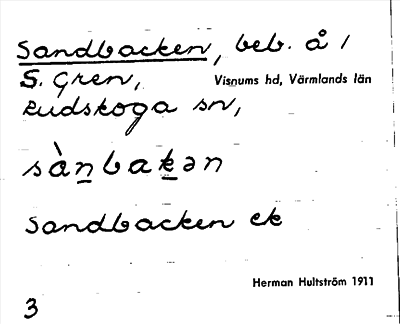 Sandbacken, beb. å /
S. Gren, Visnums hd, Värmlands län
Rudskoga sn,
sànbakən
Sandbacken ek
Herman Hultström 1911
3